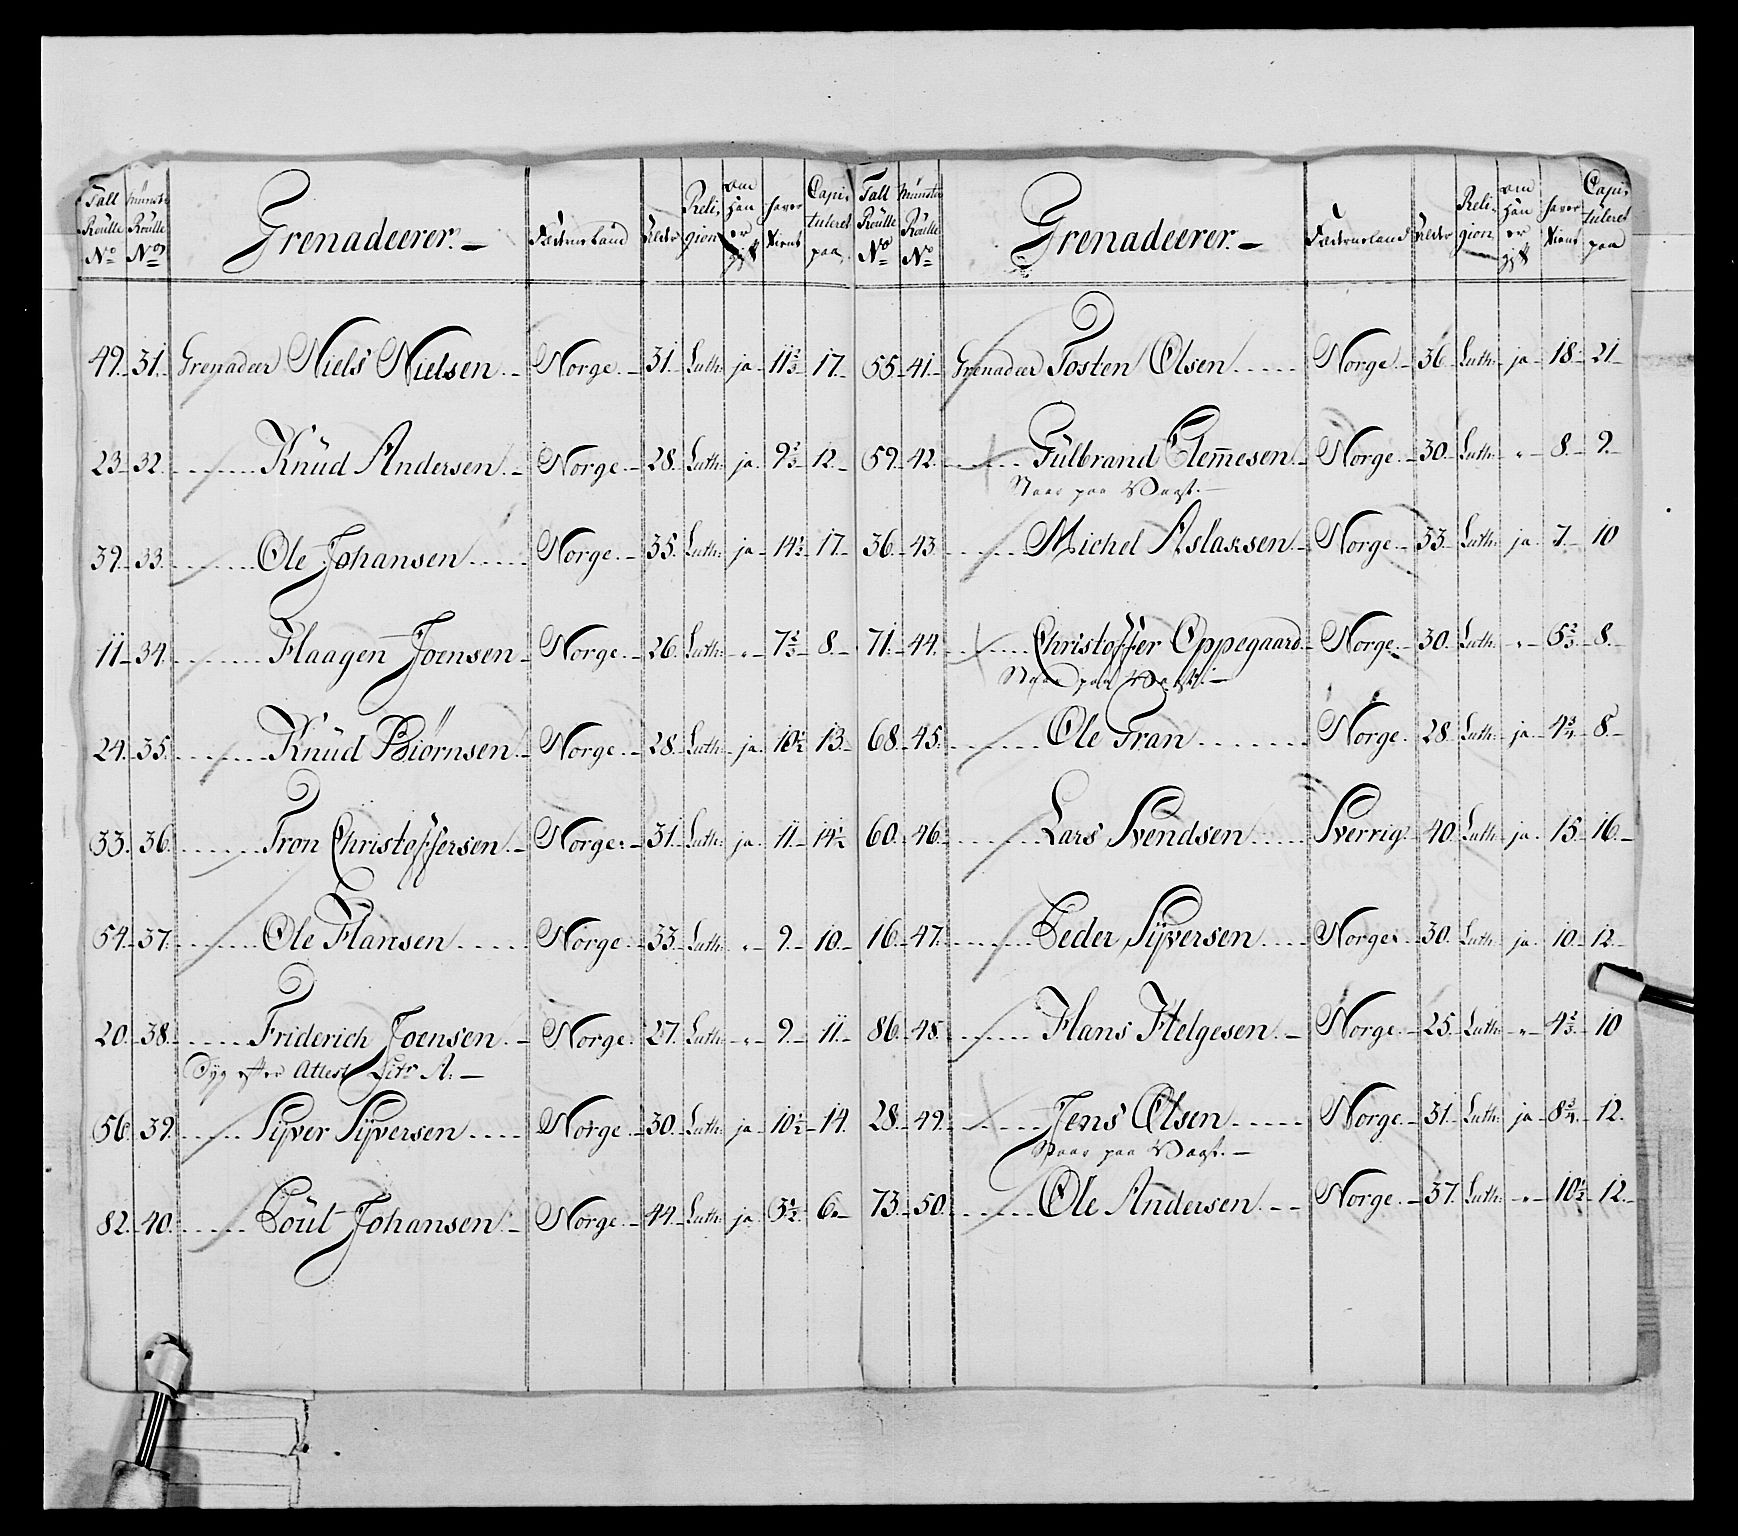 Tall Roulle No | Münster Roulle No | Grenadeerer. | Fæderneland | Alder | Religion | om han er gift | haver tient | Capituleret paa
49. 31. Grenadeer Niels Nielsen. Norge. 31. Luth: ja 11 2/3 17.
23. 32. Knüd Andersen. Norge. 28. Luth: ja 9 2/3 12.
39. 33. Ole Johansen Norge. 35. Luth: ja 14 1/2 17.
11. 34. Haagen Joensen Norge. 26. Luth: „ 7 2/3 8.
24. 35. Knüd Biørnsen Norge. 28. Luth: ja 10 1/2 13.
33. 36. Tron Christoffersen. Norge. 31. Luth: ja 11. 14 1/2
54. 37. Ole Hansen Norge. 33. Luth: „ 9. 10.
20. 38. Friderich Joensen. Norge. 27. Luth: „ 9. 11.
Syg efter Attest Litr A:
56. 39. Syver Syversen Norge. 30. Luth: ja 10 1/2 14.
82. 40. Poül Johansen. Norge. 44. Luth: ja 3 1/2 6.
Tall Roulle No | Münster Roulle No | Grenadeerer. | Fæderneland | Alder | Religion | om han er gift | haver tient | Capituleret paa
55. 41. Grenadeer Tosten Olsen Norge. 36. Luth: ja 18. 21
59. 42. Gülbrand Clem̅esen Norge. 30. Luth: „ 8. 9.
Staar paa Vagt.
36. 43. Michel Aslaksen Norge. 33. Luth: ja 7. 10
71. 44. Christoffer Oppegaard Norge. 30. Luth: „ 5 2/3 8.
Staar paa Vagt.
68. 45. Ole Tran Norge. 28. Luth: ja 4 3/4 8.
60. 46. Lars Svendsen Sverrig 40. Luth: ja 15. 16.
16. 47. Peder Syversen Norge. 30. Luth: ja 10. 12.
86. 48. Hans Helgesen. Norge. 25. Luth: „ 4 2/3 10
28. 49. Jens Olsen Norge. 31. Luth: ja 8 3/4 12.
Staar paa Vagt.
73. 50. Ole Andersen. Norge. 37. Luth: „ 10 1/2 12.